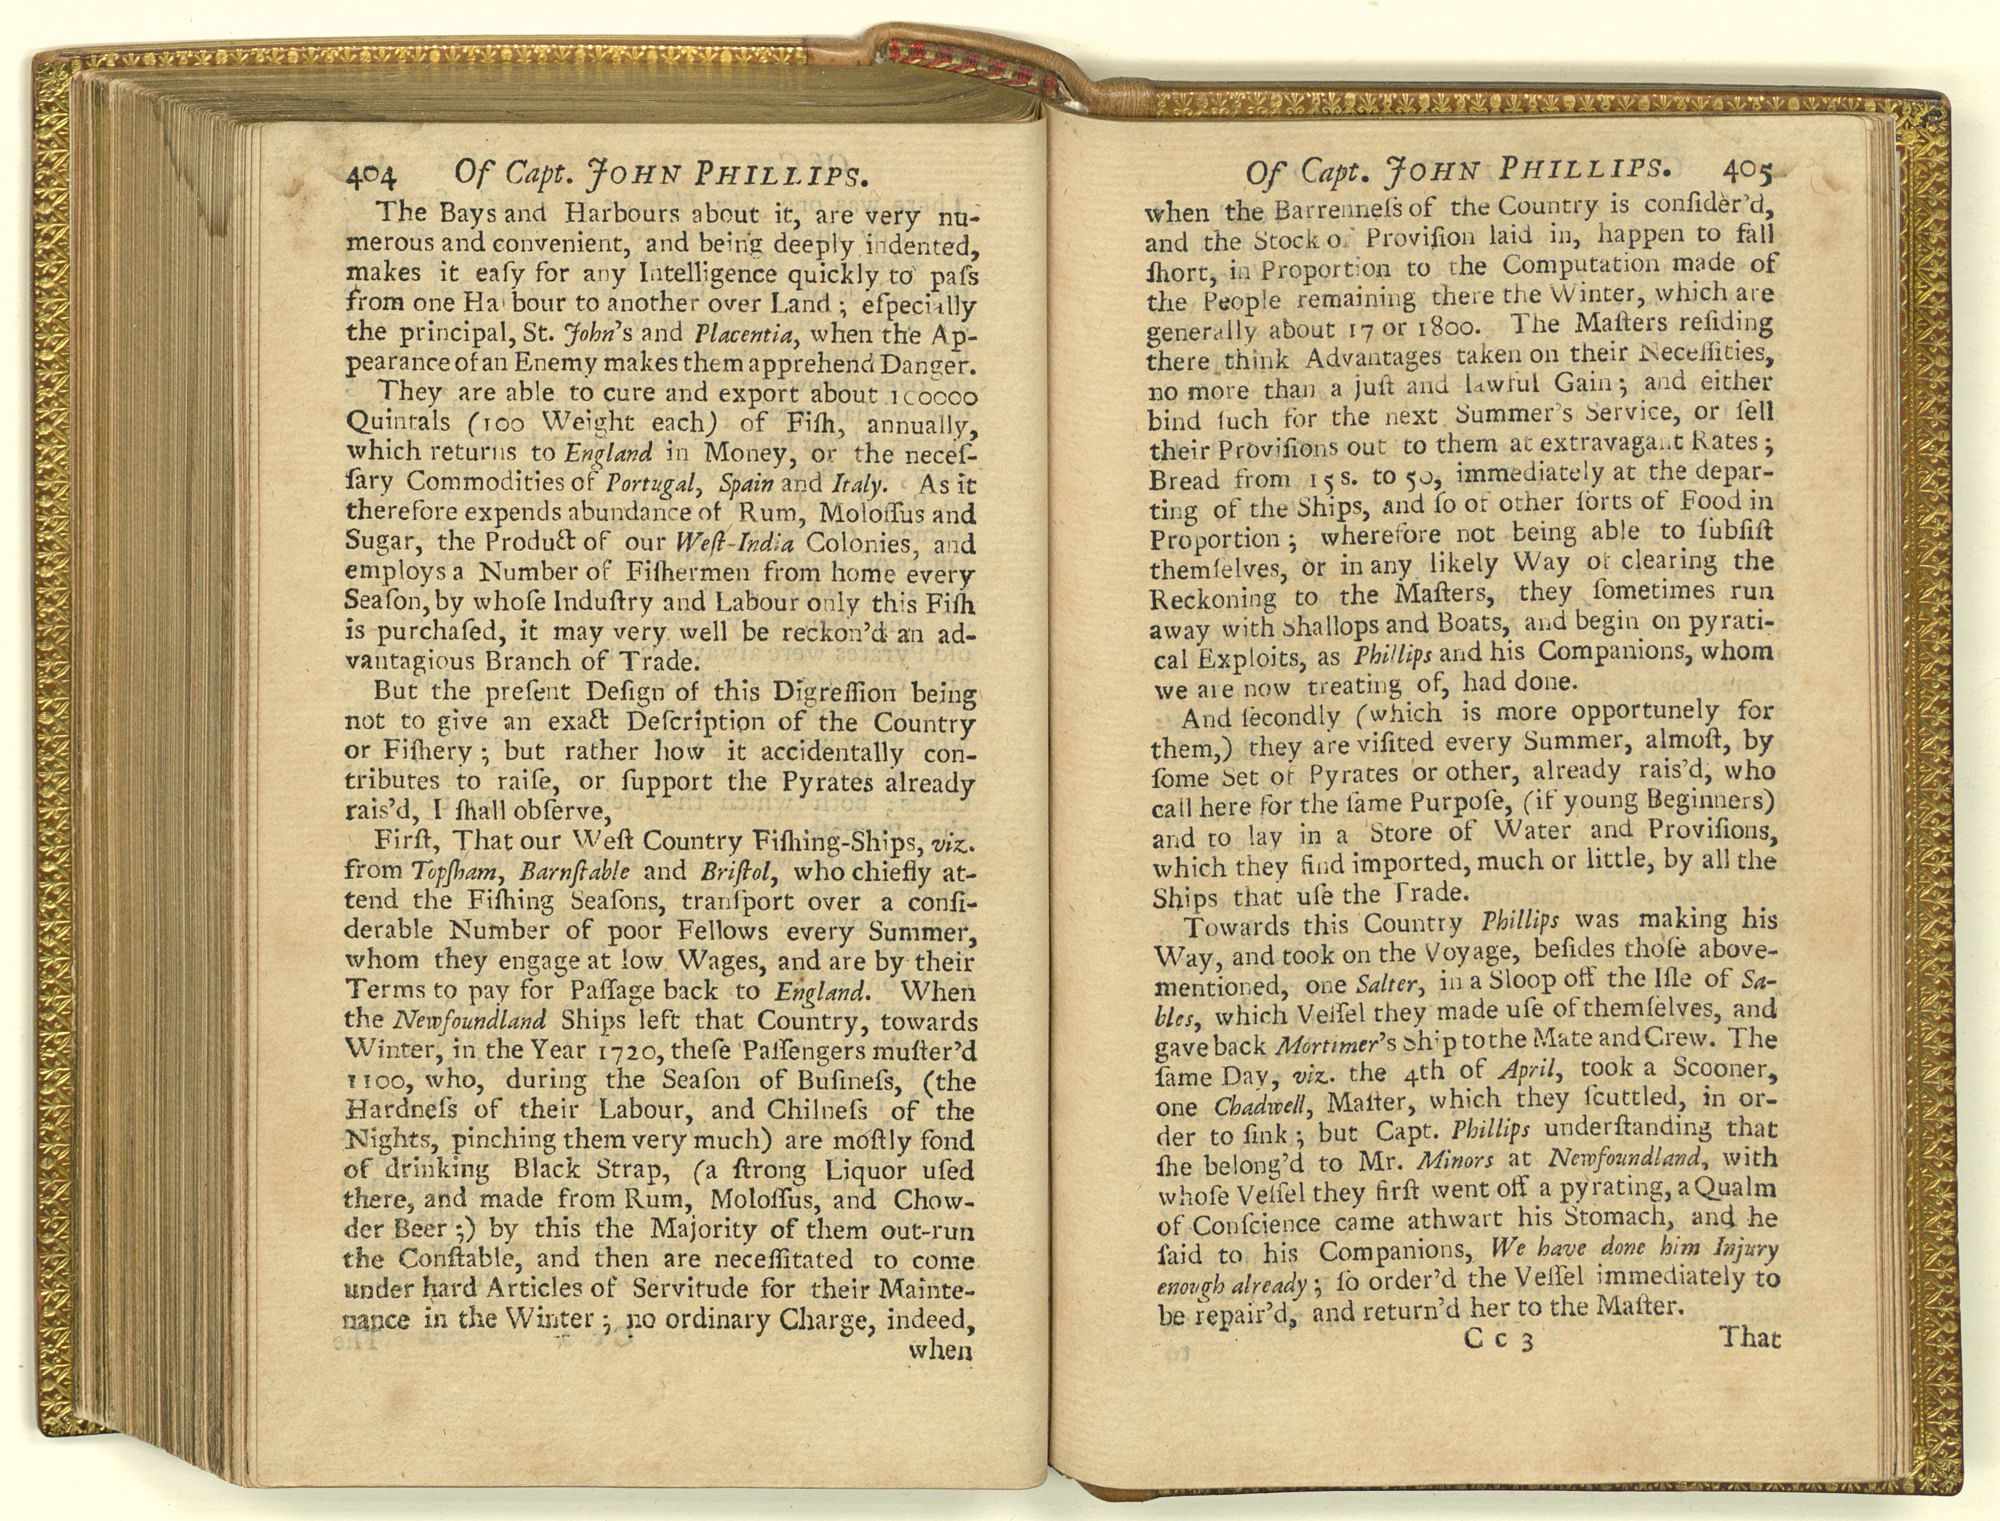 404 Of Capt. JOHN PHILLIPS.
The Bays and Harbours about it, are very nu-
merous and convenient, and being deeply indented,
makes it eaſy for any Intelligence quickly to paſs
from one Harbour to another over Land; eſpecially
the principal, St. John's and Placentia, when the Ap-
pearance of an Enemy makes them apprehend Danger.
They are able to cure and export about 100000
Quintals (100 Weight each) of Fiſh, annually,
which returns to England in Money, or the neceſ-
ſary Commodities of Portugal, Spain and Italy. As it
therefore expends abundance of Rum, Moloſſus and
Sugar, the Product of our Weſt-India Colonies, and
employs a Number of Fiſhermen from home every
Seaſon, by whoſe Induſtry and Labour only this Fiſh
is purchaſed, it may very well be reckon'd an ad-
vantagious Branch of Trade.
But the preſent Deſign of this Digreſſion being
not to give an exact Deſcription of the Country
or Fiſhery; but rather how it accidentally con-
tributes to raiſe, or ſupport the Pyrates already
rais'd, I ſhall obſerve,
Firſt, That our Weſt Country Fiſhing-Ships, viz.
from Topſham, Barnſtable and Briſtol, who chiefly at-
tend the Fiſhing Seaſons, tranſport over a conſi-
derable Number of poor Fellows every Summer,
whom they engage at low Wages, and are by their
Terms to pay for Paſſage back to England. When
the Newfoundland Ships left that Country, towards
Winter, in the Year 1720, theſe Paſſengers muſter'd
1100, who, during the Seaſon of Buſineſs, (the
Hardneſs of their Labour, and Chilneſs of the
Nights, pinching them very much) are moſtly fond
of drinking Black Strap, (a ſtrong Liquor uſed
there, and made from Rum, Moloſſus, and Chow-
der Beer;) by this the Majority of them out-run
the Conſtable, and then are neceſſitated to come
under hard Articles of Servitude for their Mainte-
nance in the Winter; no ordinary Charge, indeed,
when
Of Capt. JOHN PHILLIPS. 405
when the Barrenneſs of the Country is conſider'd,
and the Stock of Proviſion laid in, happen to fall
ſhort, in Proportion to the Computation made of
the People remaining there the Winter, which are
generally about 17 or 1800. The Maſters reſiding
there think Advantages taken on their Neceſſities,
no more than a juſt and lawful Gain; and either
bind ſuch for the next Summer's Service, or ſell
their Proviſions out to them at extravagant Rates;
Bread from 15 s. to 50, immediately at the depar-
ting of the Ships, and ſo of other ſorts of Food in
Proportion; wherefore not being able to ſubſiſt
themſelves, or in any likely Way of clearing the
Reckoning to the Maſters, they ſometimes run
away with Shallops and Boats, and begin on pyrati-
cal Exploits, as Phillips and his Companions, whom
we are now treating of, had done.
And ſecondly (which is more opportunely for
them,) they are viſited every Summer, almoſt, by
ſome Set of Pyrates or other, already rais'd, who
call here for the ſame Purpoſe, (if young Beginners)
and to lay in a Store of Water and Proviſions,
which they find imported, much or little, by all the
Ships that uſe the Trade.
Towards this Country Phillips was making his
Way, and took on the Voyage, beſides thoſe above-
mentioned, one Salter, in a Sloop off the Iſle of Sa-
bles, which Veſſel they made uſe of themſelves, and
gave back Mortimer's Ship to the Mate and Crew. The
ſame Day, viz. the 4th of April, took a Scooner,
one Chadwell, Maſter, which they ſcuttled, in or-
der to ſink; but Capt. Phillips underſtanding that
ſhe belong'd to Mr. Minors at Newfoundland, with
whoſe Veſſel they firſt went off a pyrating, a Qualm
of Conſcience came athwart his Stomach, and he
ſaid to his Companions, We have done him Injury
enough already; ſo order'd the Veſſel immediately to
be repair'd, and return'd her to the Maſter.
C c 3 That